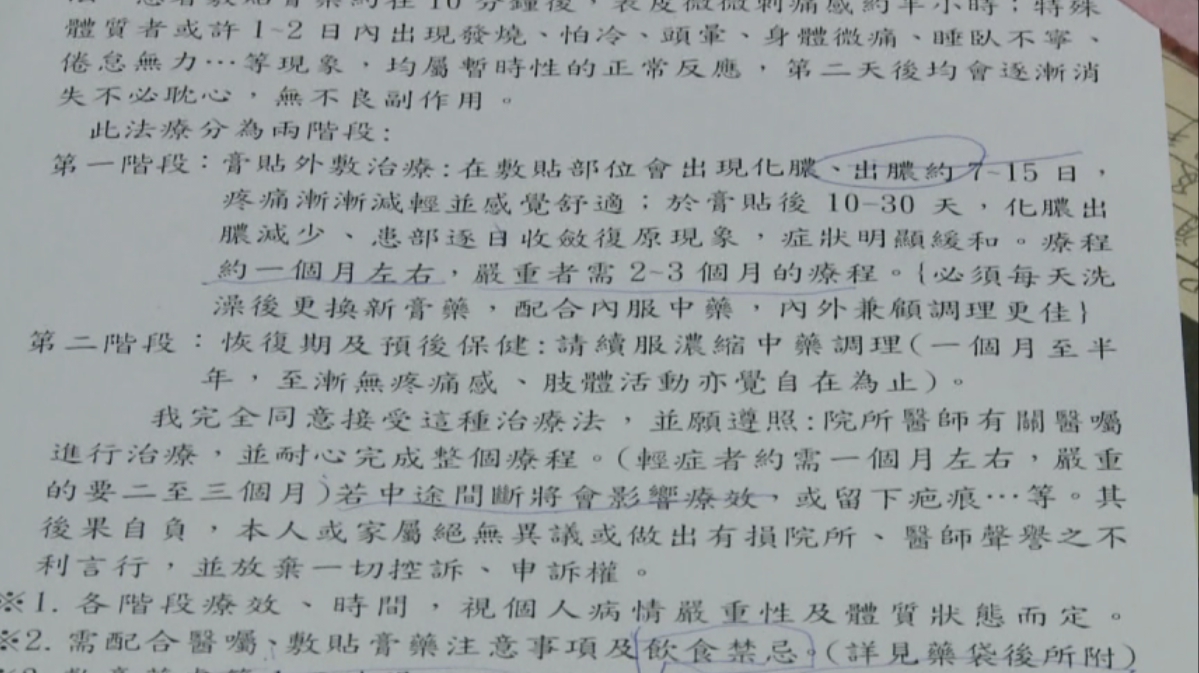 體質者或許1~2日內出現發燒、怕冷、頭暈、身體微痛、睡臥不寧、
倦怠無力…等現象，均屬暫時性的正常反應，第二天後均會逐漸消
失不必耽心，無不良副作用。
此法療分為兩階段:
第一階段：膏貼外敷治療:在敷貼部位會出現化膿、出膿約7~15日，
疼痛漸漸減輕並感覺舒適；於膏貼後10-30天，化膿出
膿減少、患部逐日收斂復原現象，症狀明顯緩和。療程
約一個月左右，嚴重者需2~3個月的療程。{必須每天洗
澡後更換新膏藥，配合內服中藥，內外兼顧調理更佳}
第二階段：恢復期及預後保健:請續服濃縮中藥調理(一個月至半
年，至漸無疼痛感、肢體活動亦覺自在為止)。
我完全同意接受這種治療法，並願遵照:院所醫師有關醫囑
進行治療，並耐心完成整個療程。(輕症者約需一個月左右，嚴重
的要二至三個月)若中途間斷將會影響療效，或留下疤痕…等。其
後果自負，本人或家屬絕無異議或做出有損院所、醫師聲譽之不
利言行，並放棄一切控訴、申訴權。
※1.各階段療效、時間，視個人病情嚴重性及體質狀態而定。
※2.需配合醫囑、敷貼膏藥注意事項及飲食禁忌。(詳見藥袋後所附)